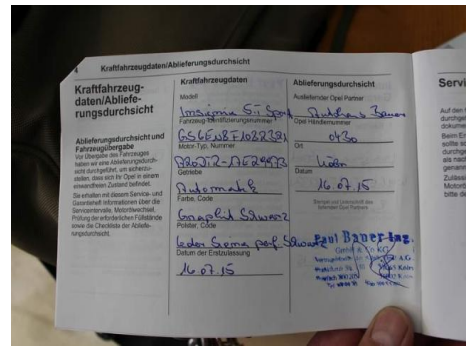 4 Kraftfahrzeugdaten/Ablieferungsdurchsicht
Kraftfahrzeug-
daten/Abliefe-
rungsdurchsicht
Ablieferungsdurchsicht und
Fahrzeugübergabe
Vor Übergabe des Fahrzeuges
haben wir eine Ablieferungsdurch-
sicht durchgeführt, um sicherzu-
stellen, dass sich Ihr Opel in einem
einwandfreien Zustand befindet.
Sie erhalten mit diesem Service- und
Garantieheft Informationen über die
Serviceintervalle, Motorölwechsel,
Prüfung der erforderlichen Füllstände
sowie die Checkliste der Ablieferungs-
rungsdurchsicht.
Kraftfahrzeugdaten
Modell
Insignia ST Sport
Fahrzeug-Identifizierungsnummer
Motor-Typ, Nummer
Getriebe
Automatik
Farbe, Code
Graphit Schwarz
Polster, Code
Leder Siena perf Schwarz
Datum der Erstzulassung
16.07.15
Ablieferungsdurchsicht
Ausliefernder Opel Partner
Autohaus Bauer
Opel Händlernummer
0430
Ort
Köln
Datum
16.07.15
Stempel und Unterschrift des
liefernden Opel Partners
Paul Bauer Ing.
GmbH & Co KG
Köln
Servi
Auf den
durchge
dokume
Beim Er
sollte so
durchge
als nach
genann
Zulässi
Motorö
bitte de